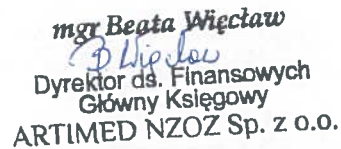 mgr Beata Więcław
B Więcław
Dyrektor ds. Finansowych
Główny Księgowy
ARTIMED NZOZ Sp. z o.o.